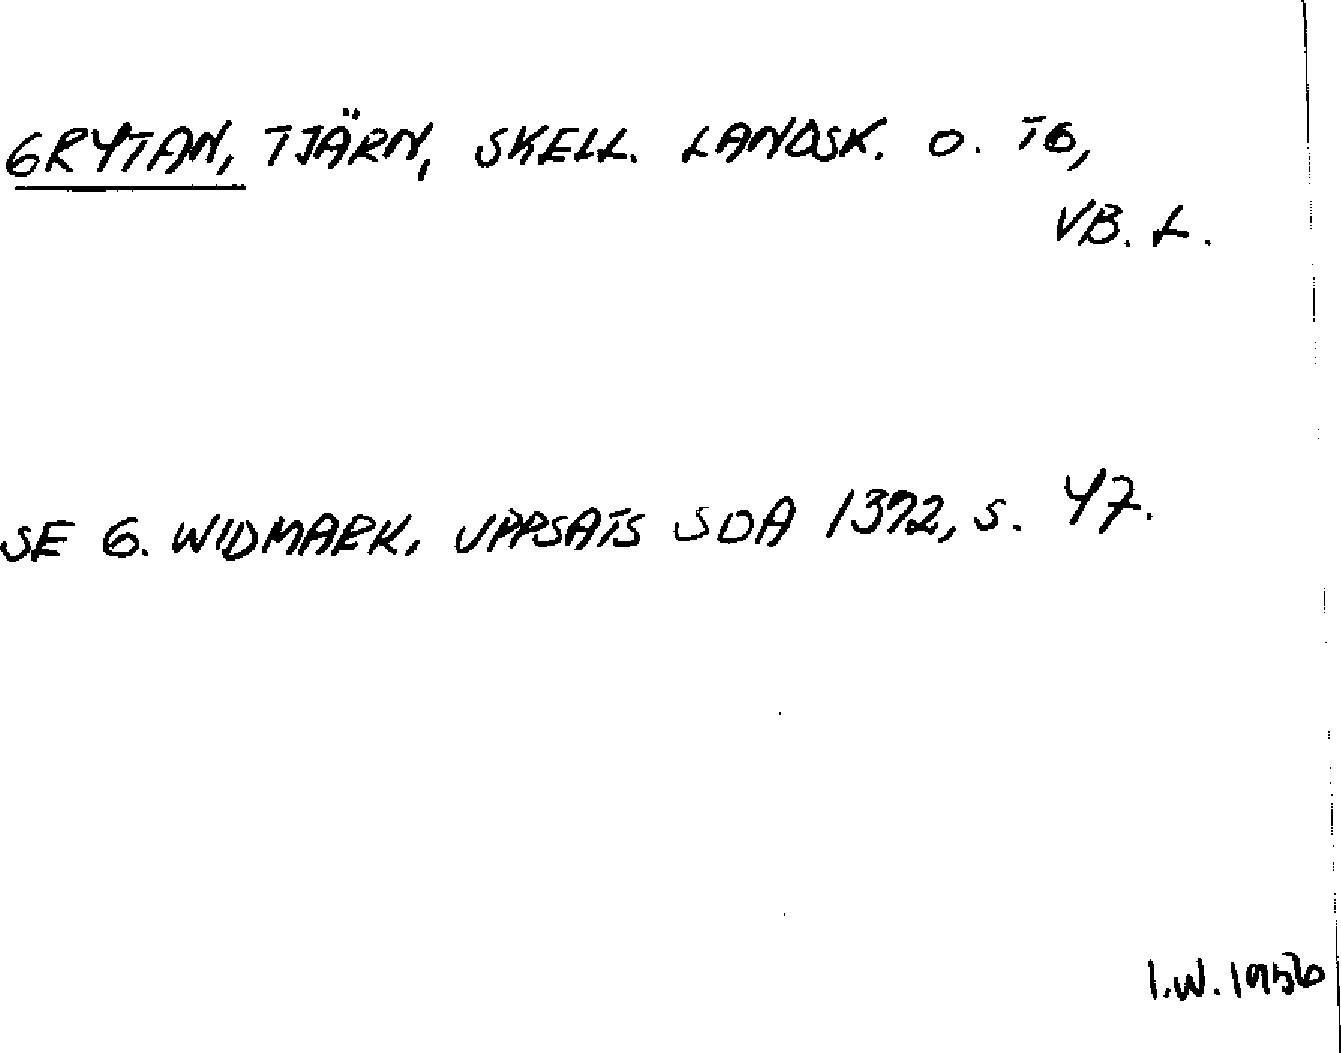 GRYTAN, TJÄRN, SKELL. LANDSK. O. TG,
VB. L.
SE G. WIDMARK, UPPSATS SOA 1372, S. 47.
I.W. 1956